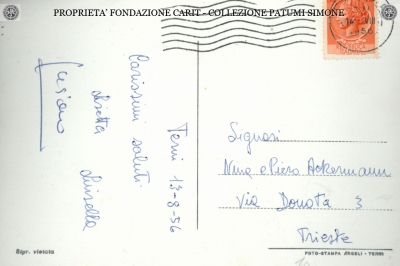 PROPRIETA' FONDAZIONE CARIT - COLLEZIONE PATUMI SIMONE
1956
Terni 13-8-56
Carissimi saluti
Lisetta
Luisella
Luciano
Signori
Nina e Piero Ackermann
Via Donota 3
Trieste
Ripr. vietata
FOTO-STAMPA ANGELI - TERNI